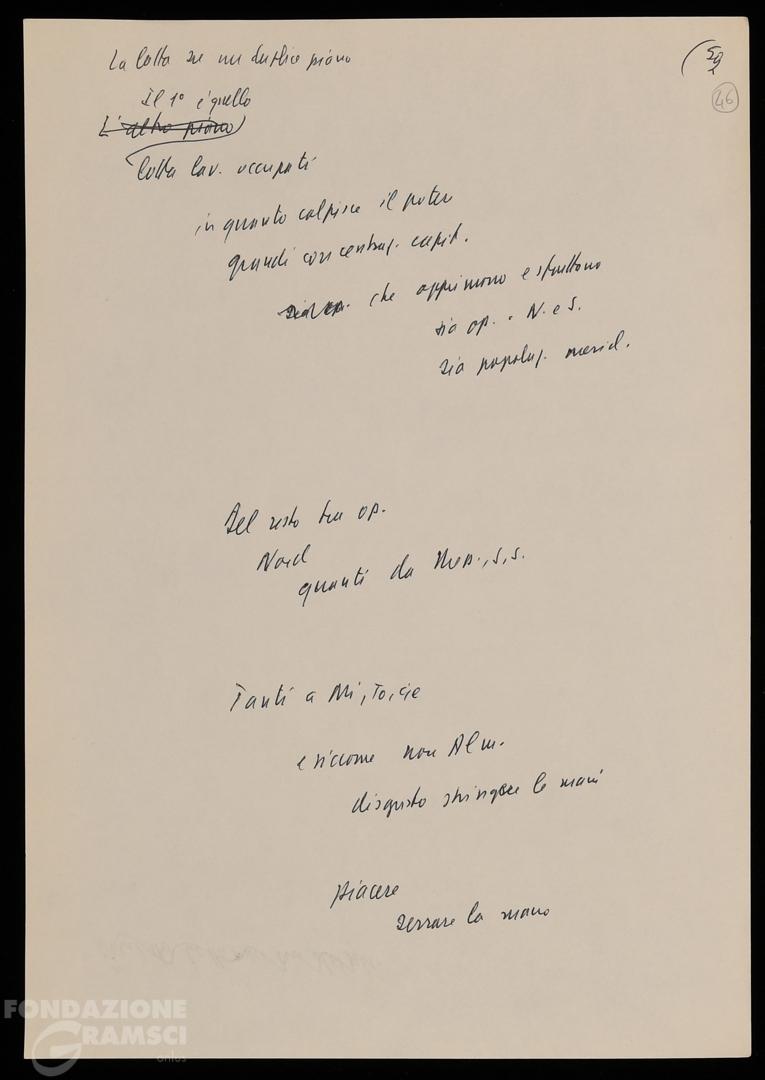 46
La lotta su un duplice piano
Il 1° è quello
L'altro piano
lotta lav. occupati
in quanto colpisce il potere
grandi concentraz. capit.
che opprimono e sfruttano
sia op. N. e S.
sia popolaz. merid.
Del resto tra op.
Nord
quanti da Nap., S, S.
Tanti a Mi, To, Ge
e siccome non Alm.
disgusto stringere le mani
piacere
serrare la mano
FONDAZIONE
GRAMSCI
onlus